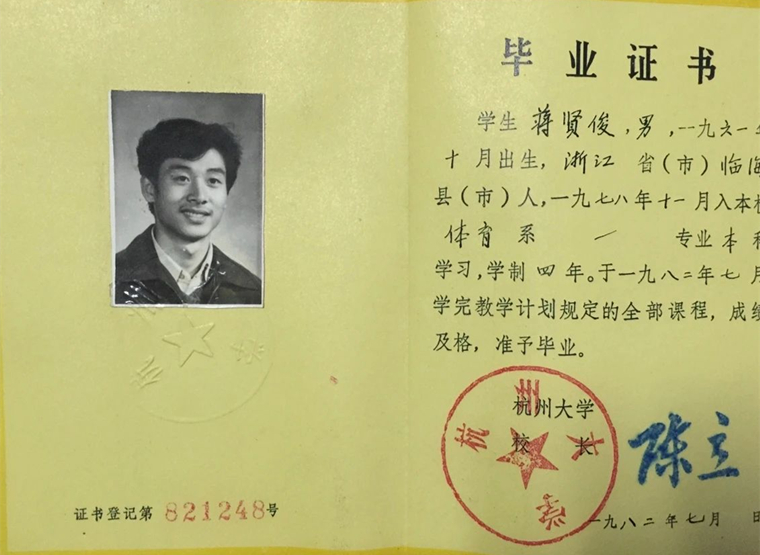 证书登记第 821248号
毕业证书
学生 蒋贤俊,男,一九六一年
十月出生,浙江 省(市)临海
县(市)人,一九七八年十一月入本校
体育系 一 专业本科
学习,学制四年。于一九八二年七月
学完教学计划规定的全部课程,成绩
及格,准予毕业。
杭州大学
校 长 陈立
杭州大学
一九八二年七月 日